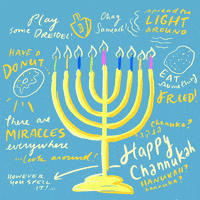 Play
some DREIDEL!
Chag
Sameach!
spread the
LIGHT
AROUND
HAVE A
DONUT
EAT
something
FRIED!
There are
MIRACLES
everywhere
...look around!
Chanuka?
Happy
Channukah
HANUKAH?
HOWEVER
YOU SPELL
IT!...